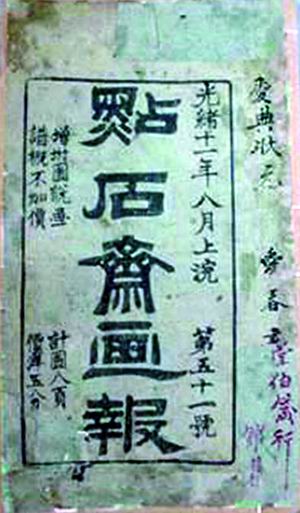 慶典狀元
光緒十一年八月上浣 第五十一號
點石齋画報
增坿圖說畫 計圖八頁
譜概不加價 價洋五分